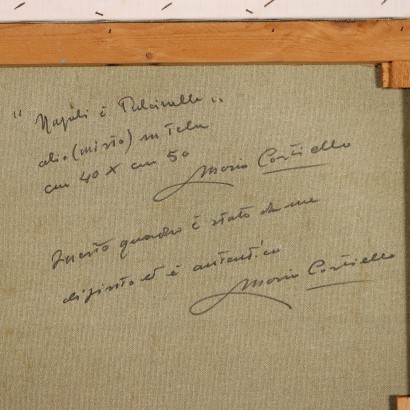 "Napoli è Pulcinella"
olio (misto) su tela
cm 40 x cm 50
Mario Cortiello
Questo quadro è stato da me
dipinto ed è autentico
Mario Cortiello